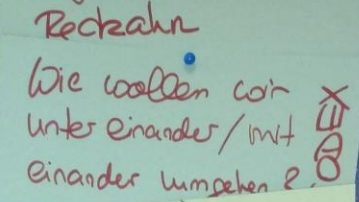 Reckahn
Wie wollen wir
unter einander / mit
einander umgehen ?